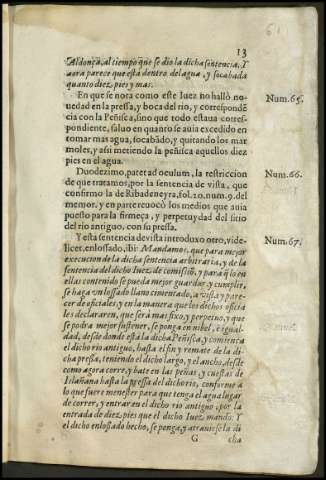 13
Aldonça, al tiempo que se dio la dicha sentencia. Y
aora parece que està dentro del agua, y socabada
quanto diez pies y mas.
En que se nota como este Iuez no hallò no-
uedad en la pressa, y boca del rio, y correspondẽ
cia con la Peñisca, sino que todo estaua corres-
pondiente, saluo en quanto se auia excedido en
tomar mas agua, socabãdo, y quitando los mar
moles, y assi metiendo la peñisca aquellos diez
pies en el agua.
Num. 65.
Duodezimo, patet ad oculum, la restriccion
de que tratamos, por la sentencia de vista, que
confirmò la de Ribadeneyra, fol. 20. num. 9. del
memor. y en parte reuocò los medios que auia
puesto para la firmeça, y perpetuydad del sitio
del rio antiguo, con su pressa.
Num. 66.
Y esta sentencia de vista introduxo otro, vide-
licet, enlossado, ibi: Mandamos, que para mejor
execucion de la dicha sentencia arbitraria, y de la
sentencia del dicho Iuez de comisiõ, y para q̃ lo en
ellas contenido se pueda mejor guardar y cumplir,
se haga vn lossado llano cimentado, a vista y pare-
cer de oficiales, y en la manera que los dichos oficia
les declararen, que serà mas fixo, y perpetuo, y que
se podra mejor sustener, se ponga en nibel, è igual-
dad, desde donde està la dicha Peñisca, y comiença
el dicho rio antiguo, hasta el fin y remate de la di-
cha pressa, teniendo el dicho largo, y el ancho, desde
como agora corre, y bate en las peñas, y cuestas de
Islañana hasta la pressa del dicho rio, conforme a
lo que fuere menester para que tenga el agua lugar
de correr, y entrar en el dicho rio antiguo, por la
entrada de diez pies que el dicho Iuez mandò: Y
el dicho enlossado hecho, se ponga, y atrauiesse la di
Num. 67.
G cha